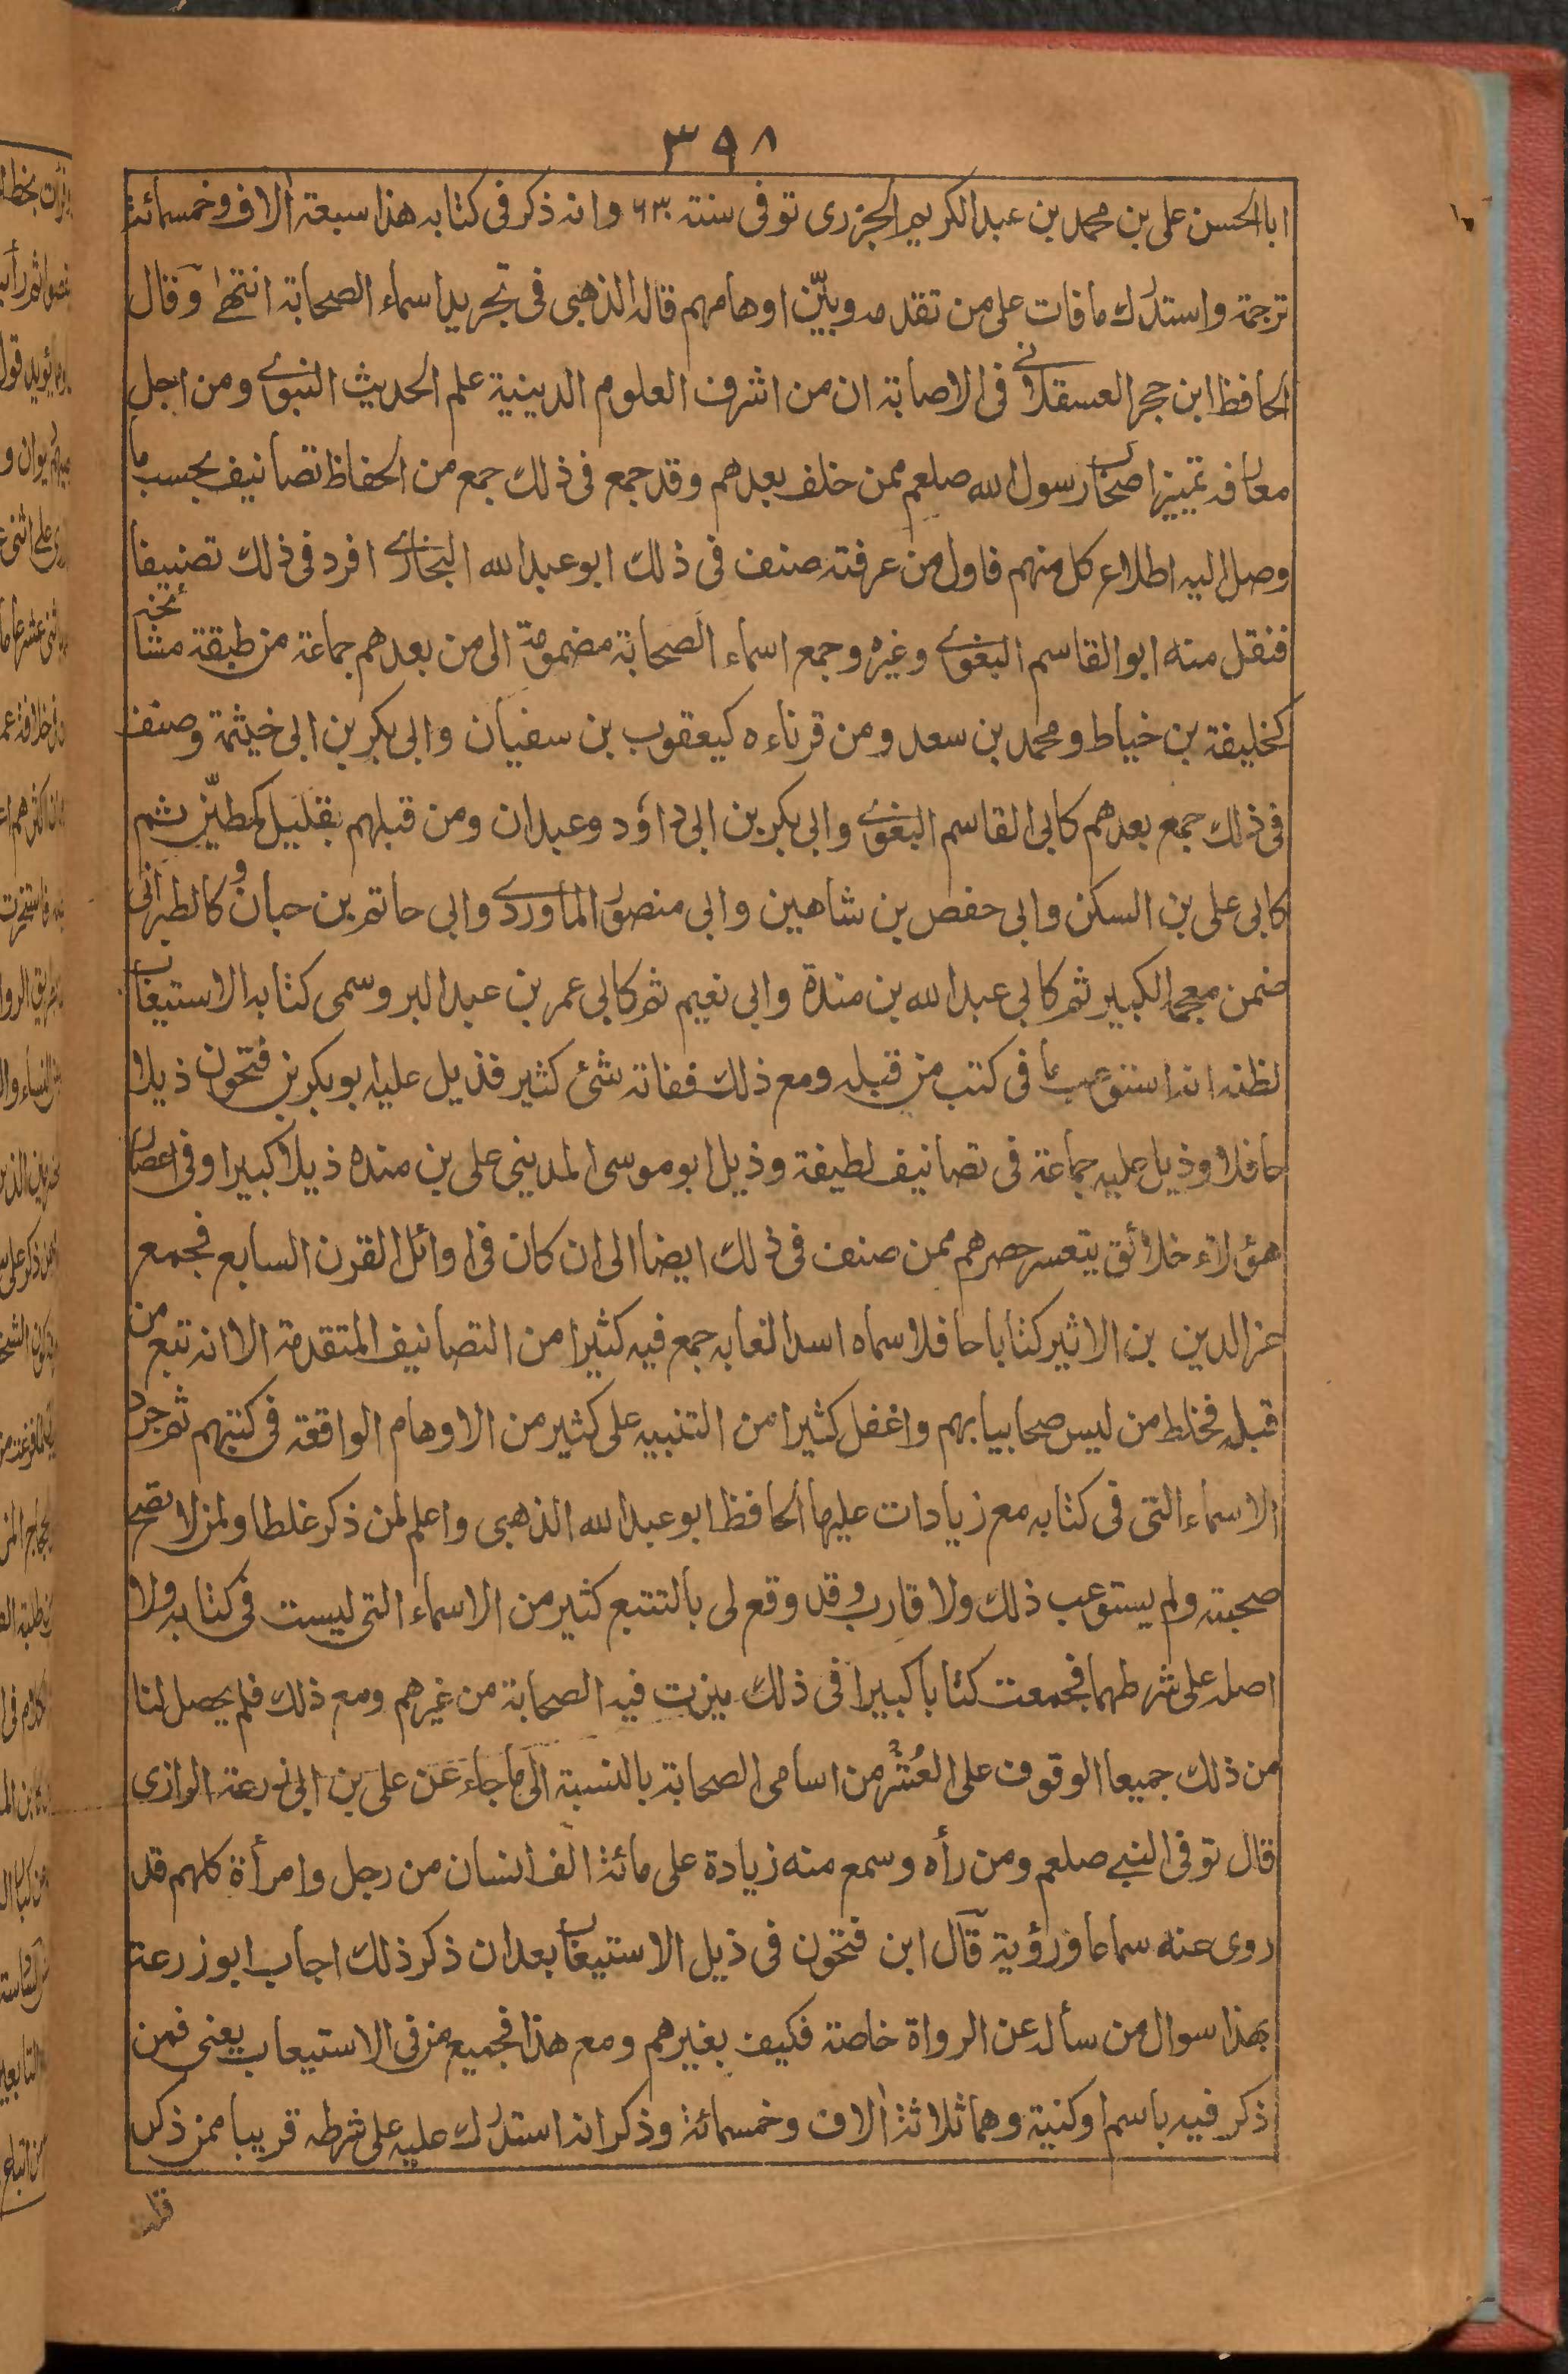 ٣٩٨
ابا الحسن على بن محمد بن عبد الكريم الجزرى توفى سنته ٦٣٠ وانه ذكر فى كتابه هذا سبعة الاف وخمسمائة
ترجمة واستدرك ما فات على من تقدمه وبيّن اوهامهم قاله الذهبى فى تجريد اسماء الصحابة انتهى وقال
الحافظ ابن حجر العسقلانى فى الاصابة ان من اشرف العلوم الدينية علم الحديث النبوے ومن اجل
معارفه تمييز اصحاب رسول الله صلعم ممن خلف بعدهم وقد جمع فى ذلك جمع من الحفاظ تصانيف بحسب ما
وصل اليه اطلاع كل منهم فاول من عرفته صنف فى ذلك ابو عبد الله البخارے افرد فى ذلك تصنيفا
فنقل منه ابو القاسم البغوے وغيره وجمع اسماء الصحابة مضمومة الى من بعدهم جماعة من طبقة مشائخه
كخليفة بن خياط ومحمد بن سعد ومن قرناءه كيعقوب بن سفيان وابى بكر بن ابى خيثمة وصنف
فى ذلك جمع بعدهم كابى القاسم البغوے وابى بكر بن ابى داؤد وعبدان ومن قبلهم بقليل كمطيّن ثم
كابى على بن السكن وابى حفص بن شاهين وابى منصور الماوردے وابى حاتم بن حبان وكالطبرانى
ضمن معجمه الكبير ثم كابى عبد الله بن مندة وابى نعيم ثم كابى عمر بن عبد البر وسمى كتابه الاستيعاب
لظنه انه استوعب ما فى كتب من قبله ومع ذلك ففاته شئ كثير فذيل عليه ابو بكر بن فتحون ذيلا
حافلا وذيل عليه جماعة فى تصانيف لطيفة وذيل ابو موسى المدينى على بن منده ذيلا كبيرا وفى اعصار
هؤلاء خلائق يتعسر حصرهم ممن صنف فى ذلك ايضا الى ان كان فى اوائل القرن السابع فجمع
عز الدين بن الاثير كتابا حافلا سماه اسد الغابه جمع فيه كثيرا من التصانيف المتقدمة الا انه تبع من
قبله فخلط من ليس صحابيا بهم واغفل كثيرا من التنبيه على كثير من الاوهام الواقعة فى كتبهم ثم جرد
الاسماء التى فى كتابه مع زيادات عليها الحافظ ابو عبد الله الذهبى واعلم لمن ذكر غلطا ولمن لا تصح
صحبته ولم يستوعب ذلك ولا قارب وقد وقع لى بالتتبع كثير من الاسماء التى ليست فى كتابه ولا
اصله على شرطهما فجمعت كتابا كبيرا فى ذلك ميزت فيه الصحابة من غيرهم ومع ذلك فلم يحصل لنا
من ذلك جميعا الوقوف على العُشر من اسامى الصحابة بالنسبة الى ما جاء عن على بن ابى زرعة الرازى
قال توفى النبے صلعم ومن رأه وسمع منه زيادة على مائة الف انسان من رجل وامرأة كلهم قد
روى عنه سماعا ورؤية قال ابن فتحون فى ذيل الاستيعاب بعد ان ذكر ذلك اجاب ابو زرعة
بهذا سوال من سأله عن الرواة خاصة فكيف بغيرهم ومع هذا فجميع من فى الاستيعاب يعنى فمن
ذكر فيه باسم او كنية وهما ثلاثة الاف وخمسمائة وذكر انه استدرك عليه على شرطه قريبا ممن ذكر